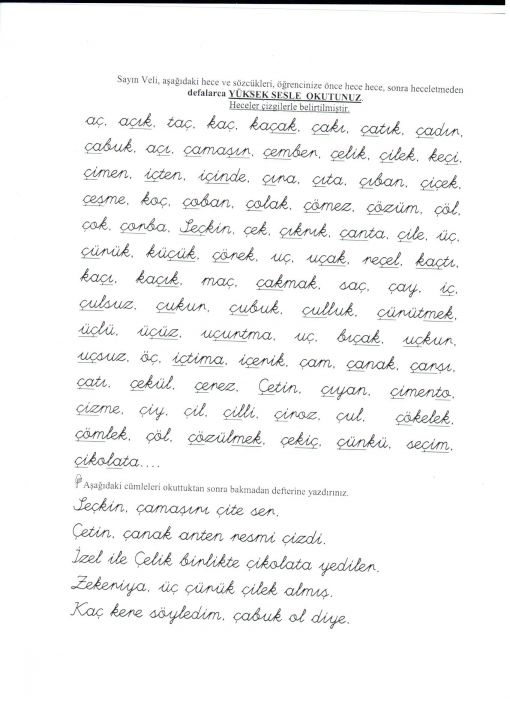 Sayın Veli, aşağıdaki hece ve sözcükleri, öğrencinize önce hece hece, sonra heceletmeden
defalarca YÜKSEK SESLE OKUTUNUZ.
Heceler çizgilerle belirtilmiştir.
aç, açık, taç, kaç, kaçak, çakı, çatık, çadır,
çabuk, açı, çamaşır, çember, çelik, çilek, keçi,
çimen, içten, içinde, çıra, çıta, çıban, çiçek,
çeşme, koç, çoban, çolak, çömez, çözüm, çöl,
çok, çorba, Seçkin, çek, çıkrık, çanta, çile, üç,
çürük, küçük, çörek, uç, uçak, reçel, kaçtı,
kaçı, kaçık, maç, çakmak, saç, çay, iç,
çulsuz, çukur, çubuk, çulluk, çürütmek,
üçlü, üçüz, uçurtma, uç, bıçak, uçkun,
uçsuz, öç, içtima, içerik, çam, çanak, çarşı,
çatı, çekül, çerez, Çetin, çıyan, çimento,
çizme, çiy, çil, çilli, çiroz, çul, çökelek,
çömlek, çöl, çözülmek, çekiç, çünkü, seçim,
çikolata....
Aşağıdaki cümleleri okuttuktan sonra bakmadan defterine yazdırınız.
Seçkin, çamaşırı çite ser.
Çetin, çanak anten resmi çizdi.
İzel ile Çelik birlikte çikolata yediler.
Zekeriya, üç çürük çilek almış.
Kaç kere söyledim, çabuk ol diye.